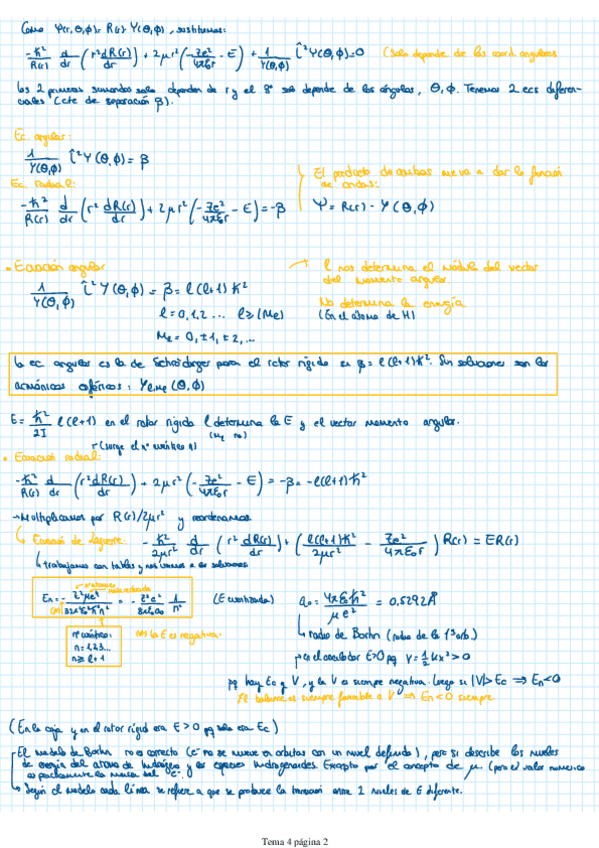 Como Ψ(r,θ,ϕ)= R(r) Y(θ,ϕ), sustituimos:
-ħ²/R(r) d/dr (r² dR(r)/dr) + 2μr² (-Ze²/4πε₀r - E) + 1/Y(θ,ϕ) L̂²Y(θ,ϕ)=0 (Solo depende de las coord. angulares
Los 2 primeros sumandos solo dependen de r y el 3º solo depende de los ángulos, θ,ϕ. Tenemos 2 ecs diferen-
ciales (cte de separación β).
Ec. angular:
1/Y(θ,ϕ) L̂²Y(θ,ϕ)= β
Ec. radial:
-ħ²/R(r) d/dr (r² dR(r)/dr) + 2μr² (-Ze²/4πε₀r - E) = -β
El producto de ambas nos va a dar la función
de ondas:
Ψ = R(r) - Y(θ,ϕ)
• Ecuación angular
1/Y(θ,ϕ) L̂²Y(θ,ϕ) = β = l(l+1)ħ²
l = 0,1,2 ... l ≥ |Ml|
Ml = 0, ±1, ±2, ...
→ l nos determina el módulo del vector
del momento angular
No determina la energía
(En el átomo de H)
La ec. angular es la de Schrödinger para el rotor rígido β = l(l+1)ħ². Sus soluciones son los
armónicos esféricos: Yl,Ml (θ,ϕ)
E = ħ²/2I l(l+1) en el rotor rígido l determina la E y el vector momento angular.
(Ml no)
• Ecuación radial: (surge el nº cuántico n)
-ħ²/R(r) d/dr (r² dR(r)/dr) + 2μr² (-Ze²/4πε₀r - E) = -β = -l(l+1)ħ²
→ Multiplicamos por R(r)/2μr² y reordenamos
Ecuación de Laguerre: -ħ²/2μr² d/dr (r² dR(r)/dr) + (l(l+1)ħ²/2μr² - Ze²/4πε₀r) R(r) = ER(r)
↳ trabajamos con tablas y nos vamos a las soluciones
masa reducida
En = - Z²μe⁴/32π²ε₀²ħ²n² = - Z²e²/8πε₀a₀ 1/n² (E cuantizada) a₀ = 4πε₀ħ²/μe² = 0,5292Å
nº cuántico:
n = 1,2,3...
n ≥ l+1
la E es negativa.
↳ radio de Bohr (radio de la 1ª orb.)
en el oscilador E>0 pq V = 1/2 kx² > 0
pq hay Ec y V, y la V es siempre negativa. Luego si |V|> Ec ⇒ En<0
El balance es siempre favorable a V ⇒ En<0 siempre
(En la caja y en el rotor rígido era E>0 pq solo era Ec)
El modelo de Bohr no es correcto (e⁻ no se mueve en órbitas con un nivel definido), pero si describe los niveles
de energía del átomo de hidrógeno y las especies hidrogenoides. Excepto por el concepto de μ. (pero el valor numérico
es prácticamente la masa del e⁻.
→ Según el modelo cada línea se refiere a que se produce la transición entre 2 niveles de E diferente.
Tema 4 página 2